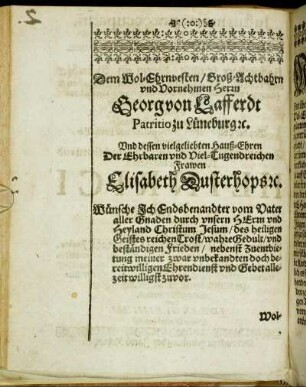 2.
(:o:)
Dem Wol-Ehrnvesten / Groß-Achtbahrn
vnd Vornehmen Herrn
Georg von Lafferdt
Patritio zu Lüneburg ꝛc.
Vnd dessen vielgeliebten Hauß-Ehren
Der Ehrbaren vnd Viel-Tugendreichen
Frawen
Elisabeth Dusterhops ꝛc.
Wünsche Ich Endsbenandter vom Vater
aller Gnaden durch vnsern HErrn vnd
Heyland Christum Jesum / des heiligen
Geistes reichen Trost / wahre Gedult / vnd
beständigen Frieden / nebenst anerbie-
tung meiner zwar vnbekandten doch be-
reitwilligen Ehrendienst vnd Gebet alle-
zeit willigst zuvor.
Wol-